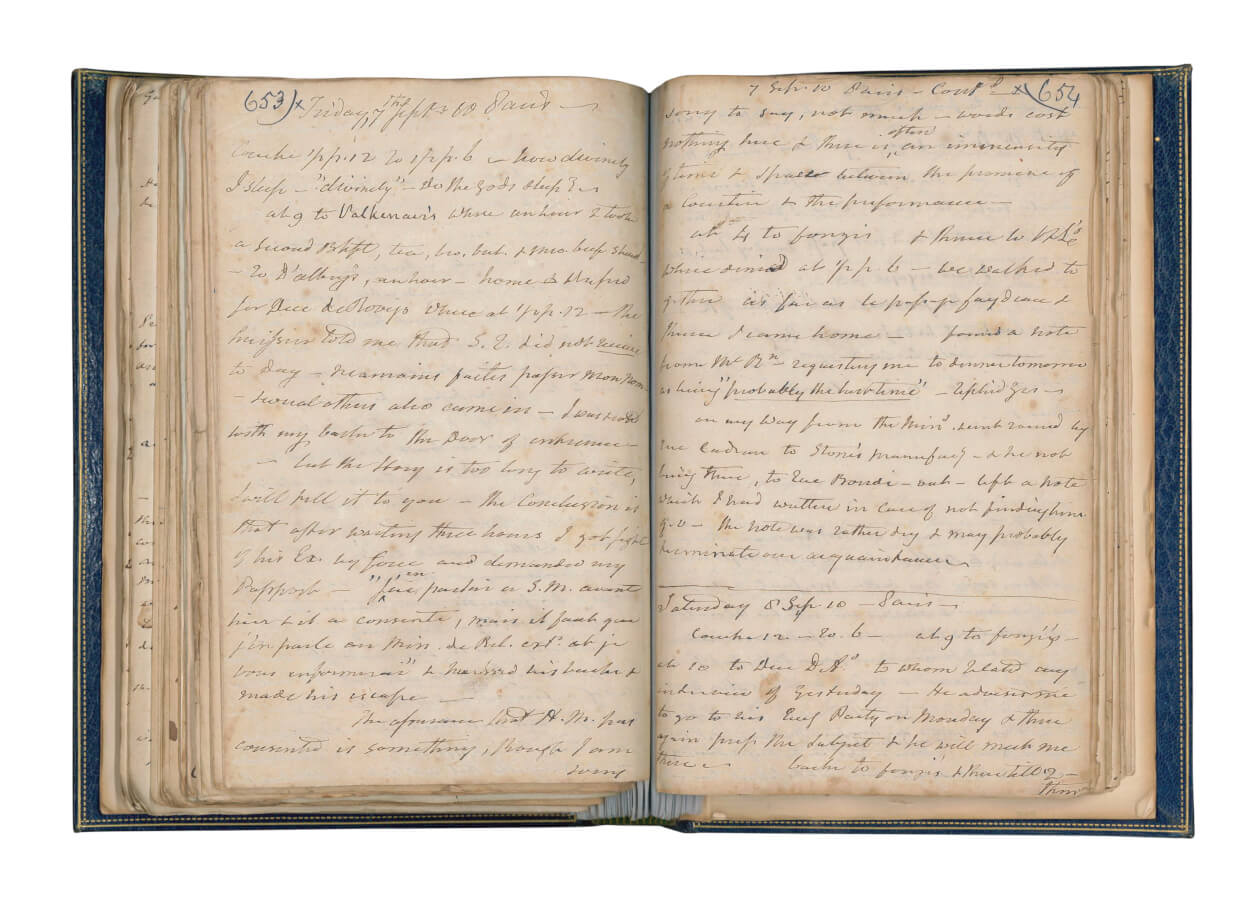 653) x Friday, 7th Sept. 10 Paris —
Couche 1/2 p. 12 to 1/2 p. 6 — how divinely
I sleep — "divinely" — do the gods sleep? —
at 9 to Valkenaer's where an hour & took
a second Bkfst, tea, bro, but. & smo. beef
— To D'alberg's, an hour — home &
for Duc de Rovigo where at 1/2 p. 12 — the
huissier told me that S. E. did not receive
to day — neamoins faites passer Mon Nom
— several others also came in — I was seated
with my back to the Door of entrance —
— but the Story is too long to write,
I will tell it to you — the Conclusion is
that after waiting three hours I got sight
of his Ex. by force and demanded my
Passport — "J'ai en parlai a S. M. avant
hier & il a consente, mais il faut que
j'en parle au Min. de Rel. extr. et je
vous informerai" & turned his back &
made his escape —
The assurance that H. M. has
consented is something, though I am
sorry
7 Sep. 10 Paris — Cont.d x (654
sorry to say, not much — words cost
nothing here & there is often an immensity
of time & space between the promise of
a Courtier & the performance —
at 4 to Fongis & thence to
where dined at 1/2 p. 6 — we walked to
gether as far as le passage faydeau &
thence I came home — found a note
from Mr. requesting me to dinner tomorrow
as being "probably the last time" — replied yes —
on my way from the Min.r went round by
rue Cadran to Stone's manufacy — & he not
being there, to Rue Bondi — out — left a note
which I had written in case of not finding him
q. v — the note was rather dry & may probably
terminate our acquaintance —
Saturday 8 Sep 10 — Paris —
Couche 12 — to 6 — at 9 to Fongis's —
at 10 to Duc D'A's to whom related my
interview of Yesterday — He advises me
to go to his Eveg Party on Monday & there
again press the Subject & he will meet me
there — back to Fongis' & there till 2 —
then